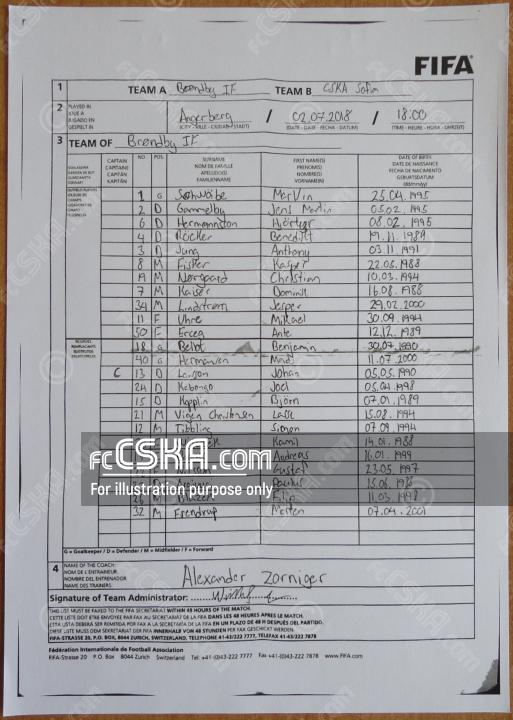 FIFA®
1 TEAM A Brøndby IF TEAM B CSKA Sofia
2 PLAYED IN JOUÉ A JUGADO EN GESPIELT IN Angerberg / 02.07.2018 / 18:00
(CITY - VILLE - CIUDAD - STADT) (DATE - DATE - FECHA - DATUM) (TIME - HEURE - HORA - UHRZEIT)
3 TEAM OF Brøndby IF
CAPTAIN CAPITAINE CAPITÁN KAPITÄN NO. POS. SURNAME NOM DE FAMILLE APELLIDO(S) FAMILIENNAME FIRST NAME(S) PRENOM(S) NOMBRE(S) VORNAME(N) DATE OF BIRTH DATE DE NAISSANCE FECHA DE NACIMIENTO GEBURTSDATUM (dd/mm/yy)
1 G Schwäbe Marvin 25.04.1995
2 D Gammelby Jens Martin 05.02.1995
6 D Hermannsson Hjörtur 08.02.1995
4 D Röcker Benedikt 19.11.1989
3 D Jung Anthony 03.11.1991
8 M Fisker Kasper 22.05.1988
19 M Nørgaard Christian 10.03.1994
7 M Kaiser Dominik 16.08.1988
34 M Lindstrøm Jesper 29.02.2000
11 F Uhre Mikael 30.09.1994
50 F Erceg Ante 12.12.1989
18 G Bellot Benjamin 30.07.1990
40 G Hermansen Mads 11.07.2000
C 13 D Larsson Johan 05.05.1990
24 D Kabongo Joel 05.04.1998
15 D Kopplin Björn 07.01.1989
21 M Vigen Christensen Lasse 15.08.1994
12 M Tibbling Simon 07.09.1994
Kamil 14.01.1988
Andreas 16.01.1999
Gustaf 23.05.1997
Paulus
Filip 11.03.1998
32 M Frendrup Morten 07.04.2001
fcCSKA.com
For illustration purpose only
G = Goalkeeper / D = Defender / M = Midfielder / F = Forward
4 NAME OF THE COACH: NOM DE L'ENTRAINEUR: NOMBRE DEL ENTRENADOR NAME DES TRAINERS Alexander Zorniger
Signature of Team Administrator:
THIS LIST MUST BE FAXED TO THE FIFA SECRETARIAT WITHIN 48 HOURS OF THE MATCH.
CETTE LISTE DOIT ÊTRE ENVOYÉE PAR FAX AU SECRETARIAT DE LA FIFA DANS LES 48 HEURES APRES LE MATCH.
ESTA LISTA DEBERÁ SER REMITIDA POR FAX A LA SECRETARÍA DE FIFA EN UN PLAZO DE 48 H DESPUÉS DEL PARTIDO.
DIESE LISTE MUSS DEM SEKRETARIAT DER FIFA INNERHALB VON 48 STUNDEN PER FAX GESCHICKT WERDEN.
FIFA-STRASSE 20, P.O. BOX, 8044 ZURICH, SWITZERLAND, TELEPHONE 41-43/222 7777, TELEFAX 41-43/222 7878
Fédération Internationale de Football Association
FIFA-Strasse 20 P.O. Box 8044 Zurich Switzerland Tel: +41-(0)43-222 7777 Fax: +41-(0)43-222 7878 www.FIFA.com